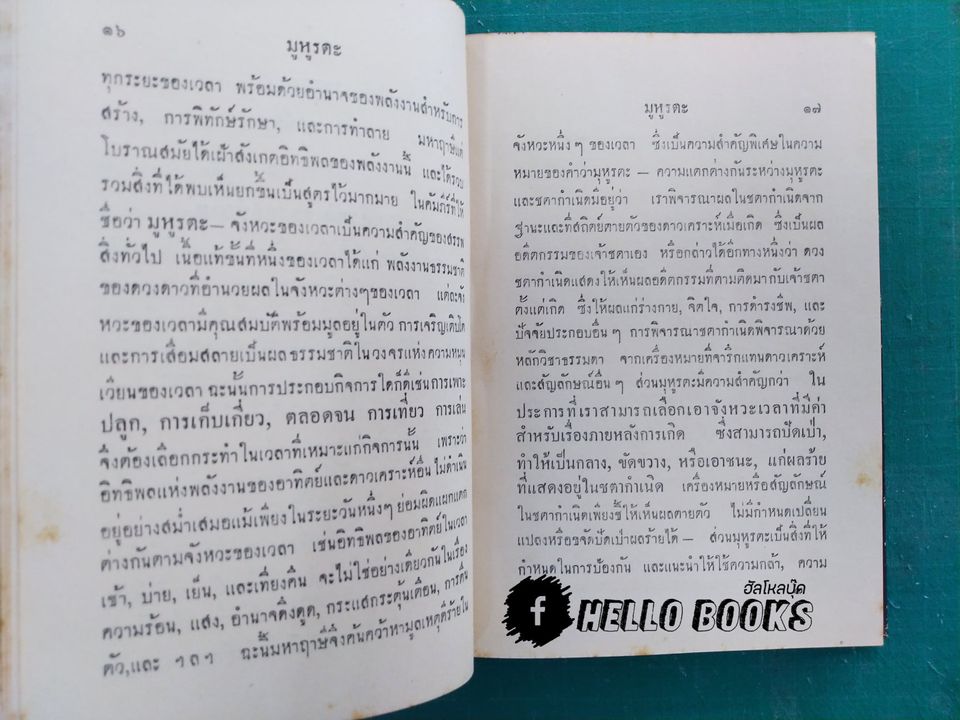 ๑๖
มูหูรตะ
ทุกระยะของเวลา พร้อมด้วยอำนาจของพลังงานสำหรับการ
สร้าง, การพิทักษ์รักษา, และการทำลาย มหาฤาษีแต่
โบราณสมัยได้เฝ้าสังเกตอิทธิพลของพลังงานนี้ และได้รวบ
รวมสิ่งที่ได้พบเห็นยกขึ้นเป็นสูตรไว้มากมาย ในคัมภีร์ที่ให้
ชื่อว่า มูหูรตะ — จังหวะของเวลาเป็นความสำคัญของสรรพ
สิ่งทั่วไป เนื้อแท้ชั้นที่หนึ่งของเวลาได้แก่ พลังงานธรรมชาติ
ของดวงดาวที่อำนวยผลในจังหวะต่างๆของเวลา แต่ละจัง
หวะของเวลามีคุณสมบัติพร้อมมูลอยู่ในตัว การเจริญเติบโต
และการเสื่อมสลายเป็นผลธรรมชาติในวงจรแห่งความหมุน
เวียนของเวลา ฉะนั้นการประกอบกิจการใดก็ดีเช่นการเพาะ
ปลูก, การเก็บเกี่ยว, ตลอดจน การเที่ยว การเล่น
จึงต้องเลือกกระทำในเวลาที่เหมาะแก่กิจการนั้น เพราะว่า
อิทธิพลแห่งพลังงานของอาทิตย์และดาวเคราะห์อื่น ไม่ดำเนิน
อยู่อย่างสม่ำเสมอแม้เพียงในระยะวันหนึ่งๆ ย่อมผิดแผกแตก
ต่างกันตามจังหวะของเวลา เช่นอิทธิพลของอาทิตย์ในเวลา
เช้า, บ่าย, เย็น, และเที่ยงคืน จะไม่ใช่อย่างเดียวกันในเรื่อง
ความร้อน, แสง, อำนาจดึงดูด, กระแสกระตุ้นเตือน, การตื่น
ตัว,และ ฯลฯ ฉะนั้นมหาฤาษีจึงค้นคว้าหามูลเหตุดีร้ายใน
มูหูรตะ
๑๗
จังหวะหนึ่งๆ ของเวลา ซึ่งเป็นความสำคัญพิเศษในความ
หมายของคำว่ามุหูรตะ — ความแตกต่างกันระหว่างมุหูรตะ
และชตากำเนิดมีอยู่ว่า เราพิจารณาผลในชตากำเนิดจาก
ฐานะและที่สถิตย์ตายตัวของดาวเคราะห์เมื่อเกิด ซึ่งเป็นผล
อดีตกรรมของเจ้าชตาเอง หรือกล่าวได้อีกทางหนึ่งว่า ดวง
ชตากำเนิดแสดงให้เห็นผลอดีตกรรมที่ตามติดมากับเจ้าชตา
ตั้งแต่เกิด ซึ่งให้ผลแก่ร่างกาย, จิตใจ, การดำรงชีพ, และ
ปัจจัยประกอบอื่นๆ การพิจารณาชตากำเนิดพิจารณาด้วย
หลักวิชาธรรมดา จากเครื่องหมายที่จารึกแทนดาวเคราะห์
และสัญลักษณ์อื่นๆ ส่วนมุหูรตะมีความสำคัญกว่า ใน
ประการที่เราสามารถเลือกเอาจังหวะเวลาที่มีค่า
สำหรับเรื่องภายหลังการเกิด ซึ่งสามารถปัดเป่า,
ทำให้เป็นกลาง, ขัดขวาง, หรือเอาชนะ, แก่ผลร้าย
ที่แสดงอยู่ในชตากำเนิด เครื่องหมายหรือสัญลักษณ์
ในชตากำเนิดเพียงชี้ให้เห็นผลตายตัว ไม่มีกำหนดเปลี่ยน
แปลงหรือขจัดปัดเป่าผลร้ายได้ — ส่วนมุหูรตะเป็นสิ่งที่ให้
กำหนดในการป้องกัน และแนะนำให้ใช้ความกล้า, ความ
ฮัลโหลบุ๊ค
f HELLO BOOKS